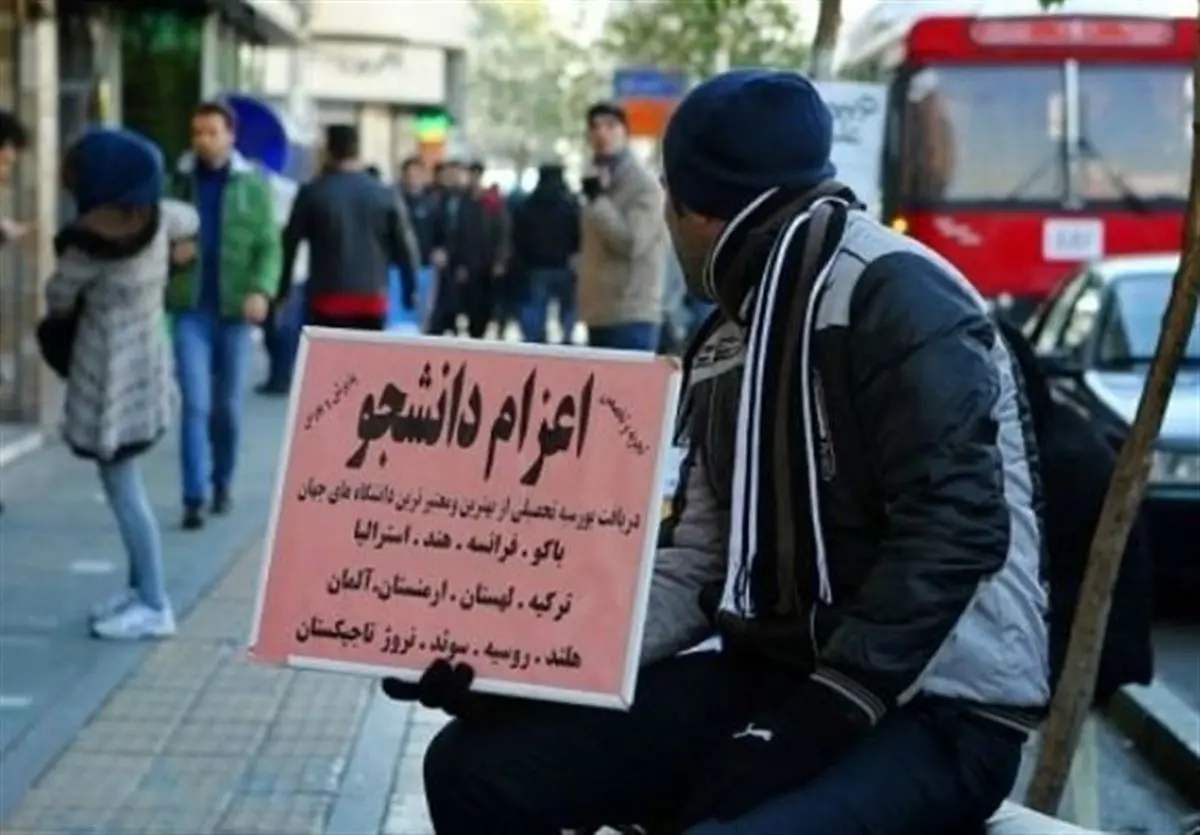 اعزام دانشجو
دریافت بورسیه تحصیلی از بهترین ومعتبر ترین دانشگاه های جهان
باکو . فرانسه . هند . استرالیا
ترکیه . لهستان . ارمنستان.آلمان
هلند . روسیه . سوئد . نروژ تاجیکستان